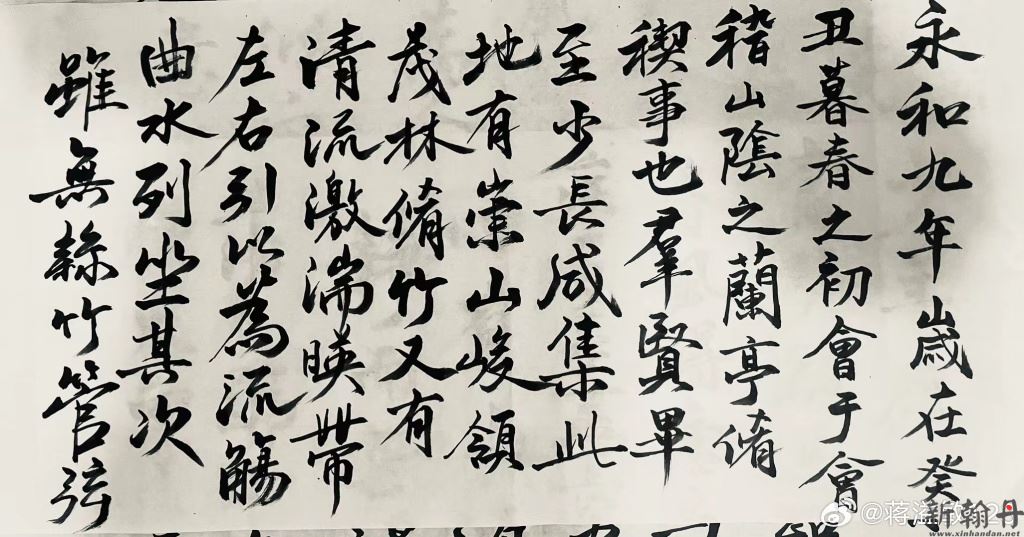 永和九年歲在癸
丑暮春之初會于會
稽山陰之蘭亭脩
稧事也羣賢畢
至少長咸集此
地有崇山峻領
茂林脩竹又有
清流激湍暎帶
左右引以為流觴
曲水列坐其次
雖無絲竹管弦
新翰丹
www.xinhandan.net